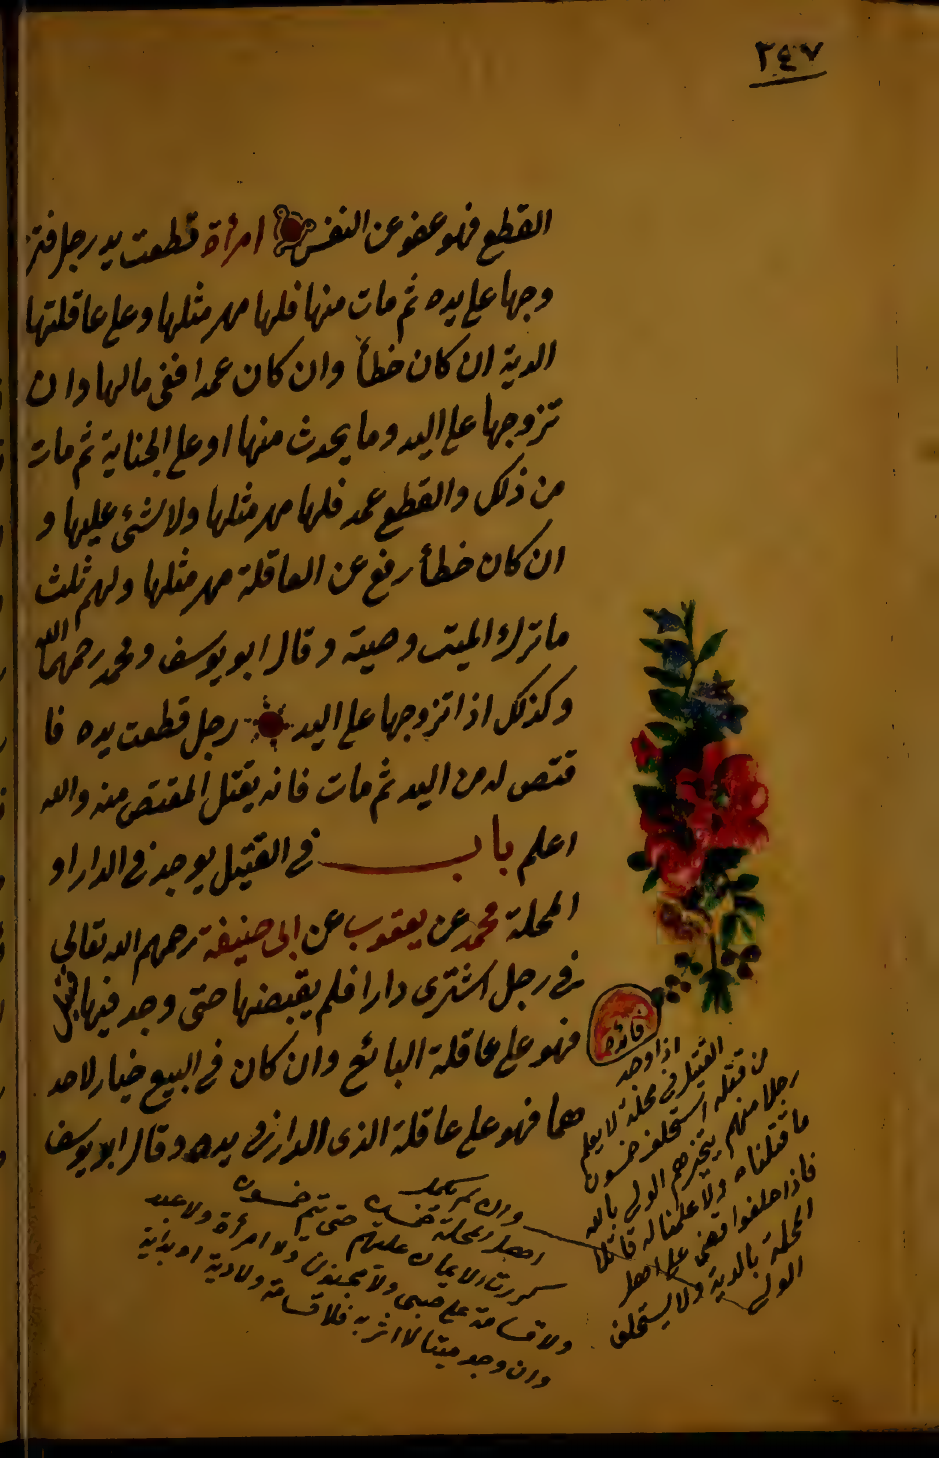 ٢٤٧
القطع فهو عفو عن النفس امرأة قطعت يد رجل فتز
وجها على يده ثم مات منها فلها مهر مثلها وعلى عاقلتها
الدية ان كان خطأ وان كان عمدا ففى مالها وان
تزوجها على اليد وما يحدث منها او على الجناية ثم مات
من ذلك والقطع عمد فلها مهر مثلها ولا شئ عليها و
ان كان خطأ رفع عن العاقلة مهر مثلها ولهم ثلث
ما ترك الميت وصية وقال ابو يوسف ومحمد رحمهما الله
وكذلك اذا تزوجها على اليد رجل قطعت يده فا
قتص له من اليد ثم مات فانه يقتل المقتص منه والله
اعلم باب فى القتيل يوجد فى الدار او
المحلة محمد عن يعقوب عن ابى حنيفة رحمهم الله تعالى
فى رجل اشترى دارا فلم يقبضها حتى وجد فيها قتيل
فهو على عاقلة البائع وان كان فى البيع خيار لاحد
هما فهو على عاقلة الذى الدار فى يده وقال ابو يوسف
فائده
اذا وجد
القتيل فى محلة لا يعلم
من قتله استحلف خمسون
رجلا منهم يتخيرهم الولى بالله
ما قتلناه ولا علمنا له قاتلا
فاذا حلفوا قضى على اهل
المحلة بالدية ولا يستحلف
الولى
وان لم يكمل
اهل المحلة خمسون
كررت الايمان عليهم حتى يتم خمسون
ولا قسامة على صبى ولا مجنون ولا امرأة ولا عبد
وان وجد ميتا لا اثر به فلا قسامة ولا دية